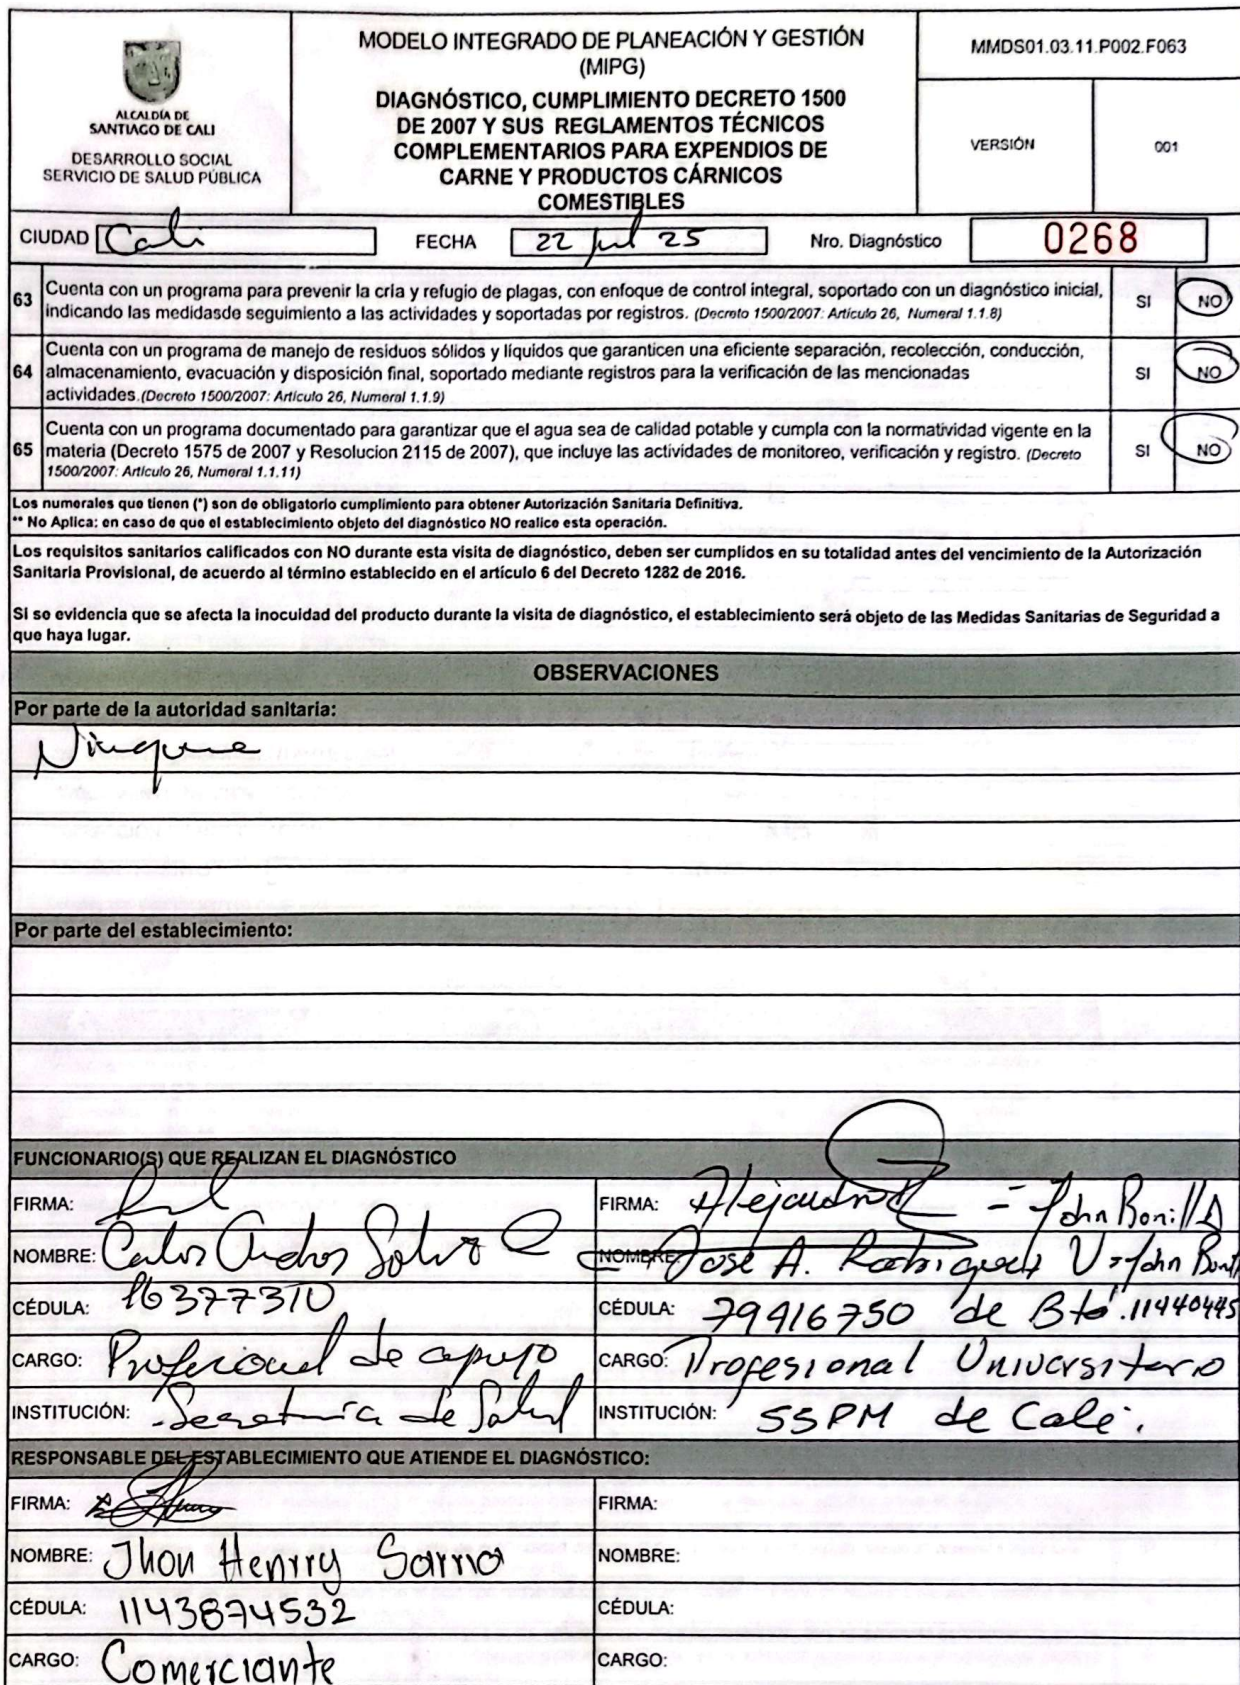 ALCALDÍA DE
SANTIAGO DE CALI
DESARROLLO SOCIAL
SERVICIO DE SALUD PÚBLICA
MODELO INTEGRADO DE PLANEACIÓN Y GESTIÓN
(MIPG)
DIAGNÓSTICO, CUMPLIMIENTO DECRETO 1500
DE 2007 Y SUS REGLAMENTOS TÉCNICOS
COMPLEMENTARIOS PARA EXPENDIOS DE
CARNE Y PRODUCTOS CÁRNICOS
COMESTIBLES
MMDS01.03.11.P002.F063
VERSIÓN 001
CIUDAD Cali FECHA 22 jul 25 Nro. Diagnóstico 0268
63 Cuenta con un programa para prevenir la cría y refugio de plagas, con enfoque de control integral, soportado con un diagnóstico inicial, SI NO
indicando las medidasde seguimiento a las actividades y soportadas por registros. (Decreto 1500/2007: Artículo 26, Numeral 1.1.8)
Cuenta con un programa de manejo de residuos sólidos y líquidos que garanticen una eficiente separación, recolección, conducción,
64 almacenamiento, evacuación y disposición final, soportado mediante registros para la verificación de las mencionadas SI NO
actividades.(Decreto 1500/2007: Artículo 26, Numeral 1.1.9)
Cuenta con un programa documentado para garantizar que el agua sea de calidad potable y cumpla con la normatividad vigente en la
65 materia (Decreto 1575 de 2007 y Resolucion 2115 de 2007), que incluye las actividades de monitoreo, verificación y registro. (Decreto SI NO
1500/2007: Artículo 26, Numeral 1.1.11)
Los numerales que tienen (*) son de obligatorio cumplimiento para obtener Autorización Sanitaria Definitiva.
** No Aplica: en caso de que el establecimiento objeto del diagnóstico NO realice esta operación.
Los requisitos sanitarios calificados con NO durante esta visita de diagnóstico, deben ser cumplidos en su totalidad antes del vencimiento de la Autorización
Sanitaria Provisional, de acuerdo al término establecido en el artículo 6 del Decreto 1282 de 2016.
Si se evidencia que se afecta la inocuidad del producto durante la visita de diagnóstico, el establecimiento será objeto de las Medidas Sanitarias de Seguridad a
que haya lugar.
OBSERVACIONES
Por parte de la autoridad sanitaria:
Ninguna
Por parte del establecimiento:
FUNCIONARIO(S) QUE REALIZAN EL DIAGNÓSTICO
FIRMA: FIRMA: Alejandro - John Bonilla
NOMBRE: Carlos Andres NOMBRE: Jose A. Rodriguez V - John Bonill
CÉDULA: 16377310 CÉDULA: 79416750 de Btá. 11440445
CARGO: Profesional de apoyo CARGO: Profesional Universitario
INSTITUCIÓN: Secretaría de Salud INSTITUCIÓN: SSPM de Cali.
RESPONSABLE DEL ESTABLECIMIENTO QUE ATIENDE EL DIAGNÓSTICO:
FIRMA: FIRMA:
NOMBRE: Jhon Henrry Sarria NOMBRE:
CÉDULA: 1143874532 CÉDULA:
CARGO: Comerciante CARGO: